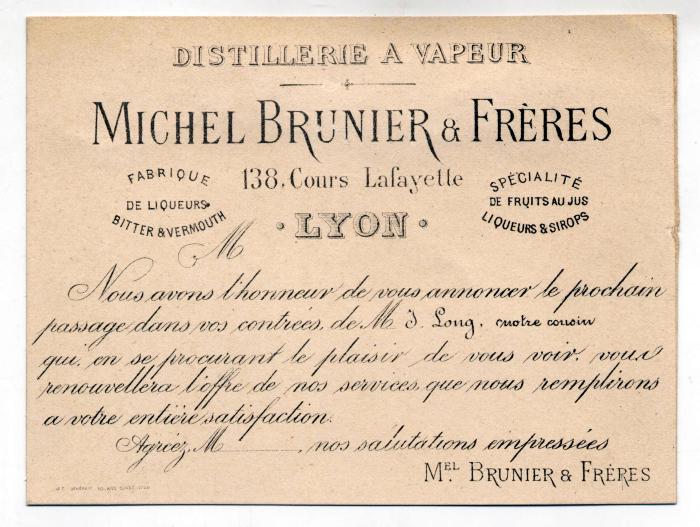 DISTILLERIE A VAPEUR
MICHEL BRUNIER & FRÈRES
138, Cours Lafayette
LYON
FABRIQUE
DE LIQUEURS
BITTER & VERMOUTH
SPÉCIALITÉ
DE FRUITS AU JUS
LIQUEURS & SIROPS
M
Nous avons l'honneur de vous annoncer le prochain
passage dans vos contrées, de M. J. Long, notre cousin
qui, en se procurant le plaisir de vous voir, vous
renouvellera l'offre de nos services, que nous remplirons
a votre entière satisfaction.
Agréez, M , nos salutations empressées
MEL BRUNIER & FRÈRES